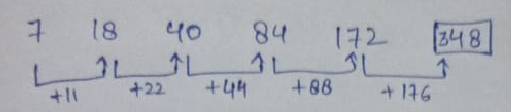 7 18 40 84 172 348
+11 +22 +44 +88 +176